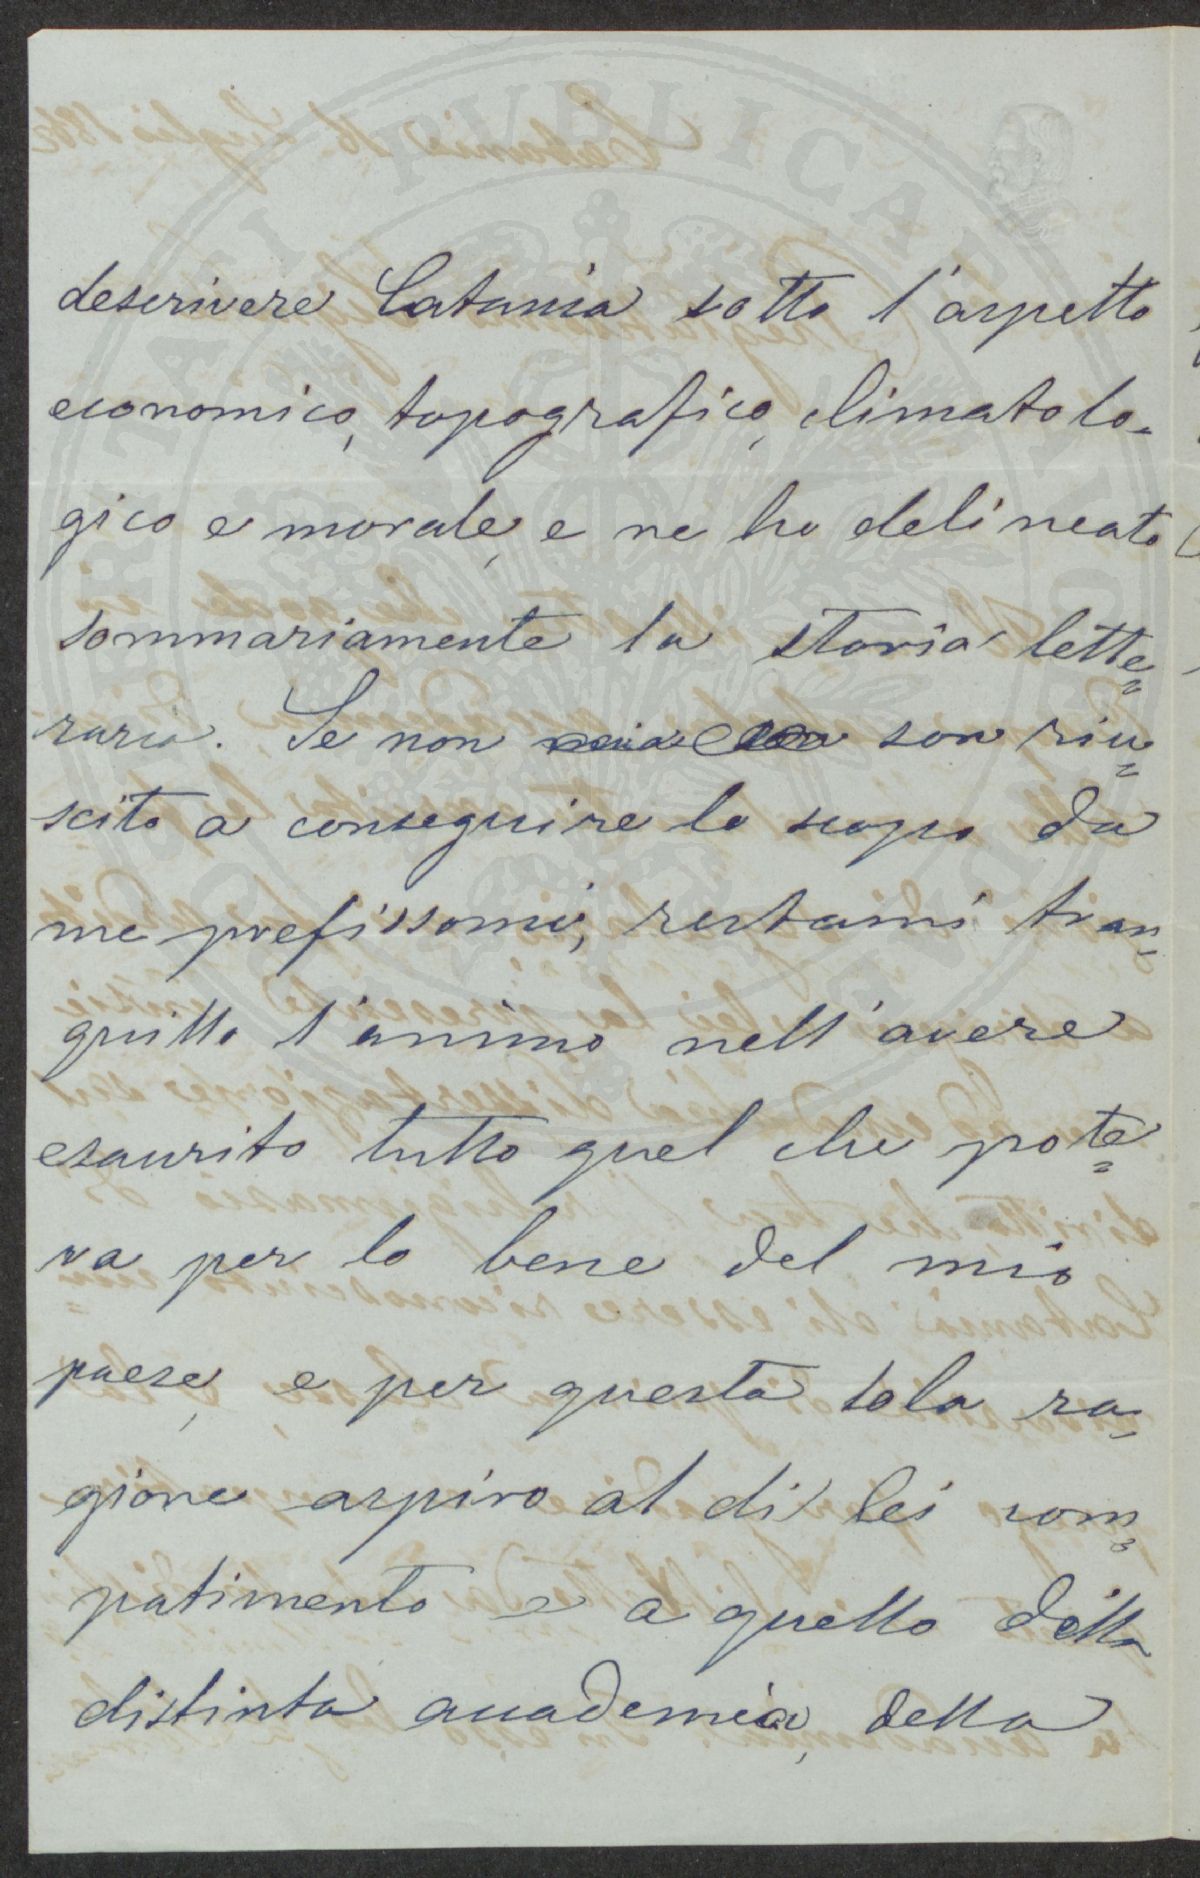 descrivere Catania sotto l'aspetto
economico, topografico, climatolo-
gico e morale, e ne ho delineato
sommariamente la storia lette=
raria. Se non son riu=
scito a conseguire lo scopo da
me prefissomi, restami tran=
quillo l'animo nell'avere
esaurito tutto quel che pote=
va per lo bene del mio
paese, e per questa sola ra=
gione aspiro al di lei com=
patimento e a quello della
distinta accademia, della